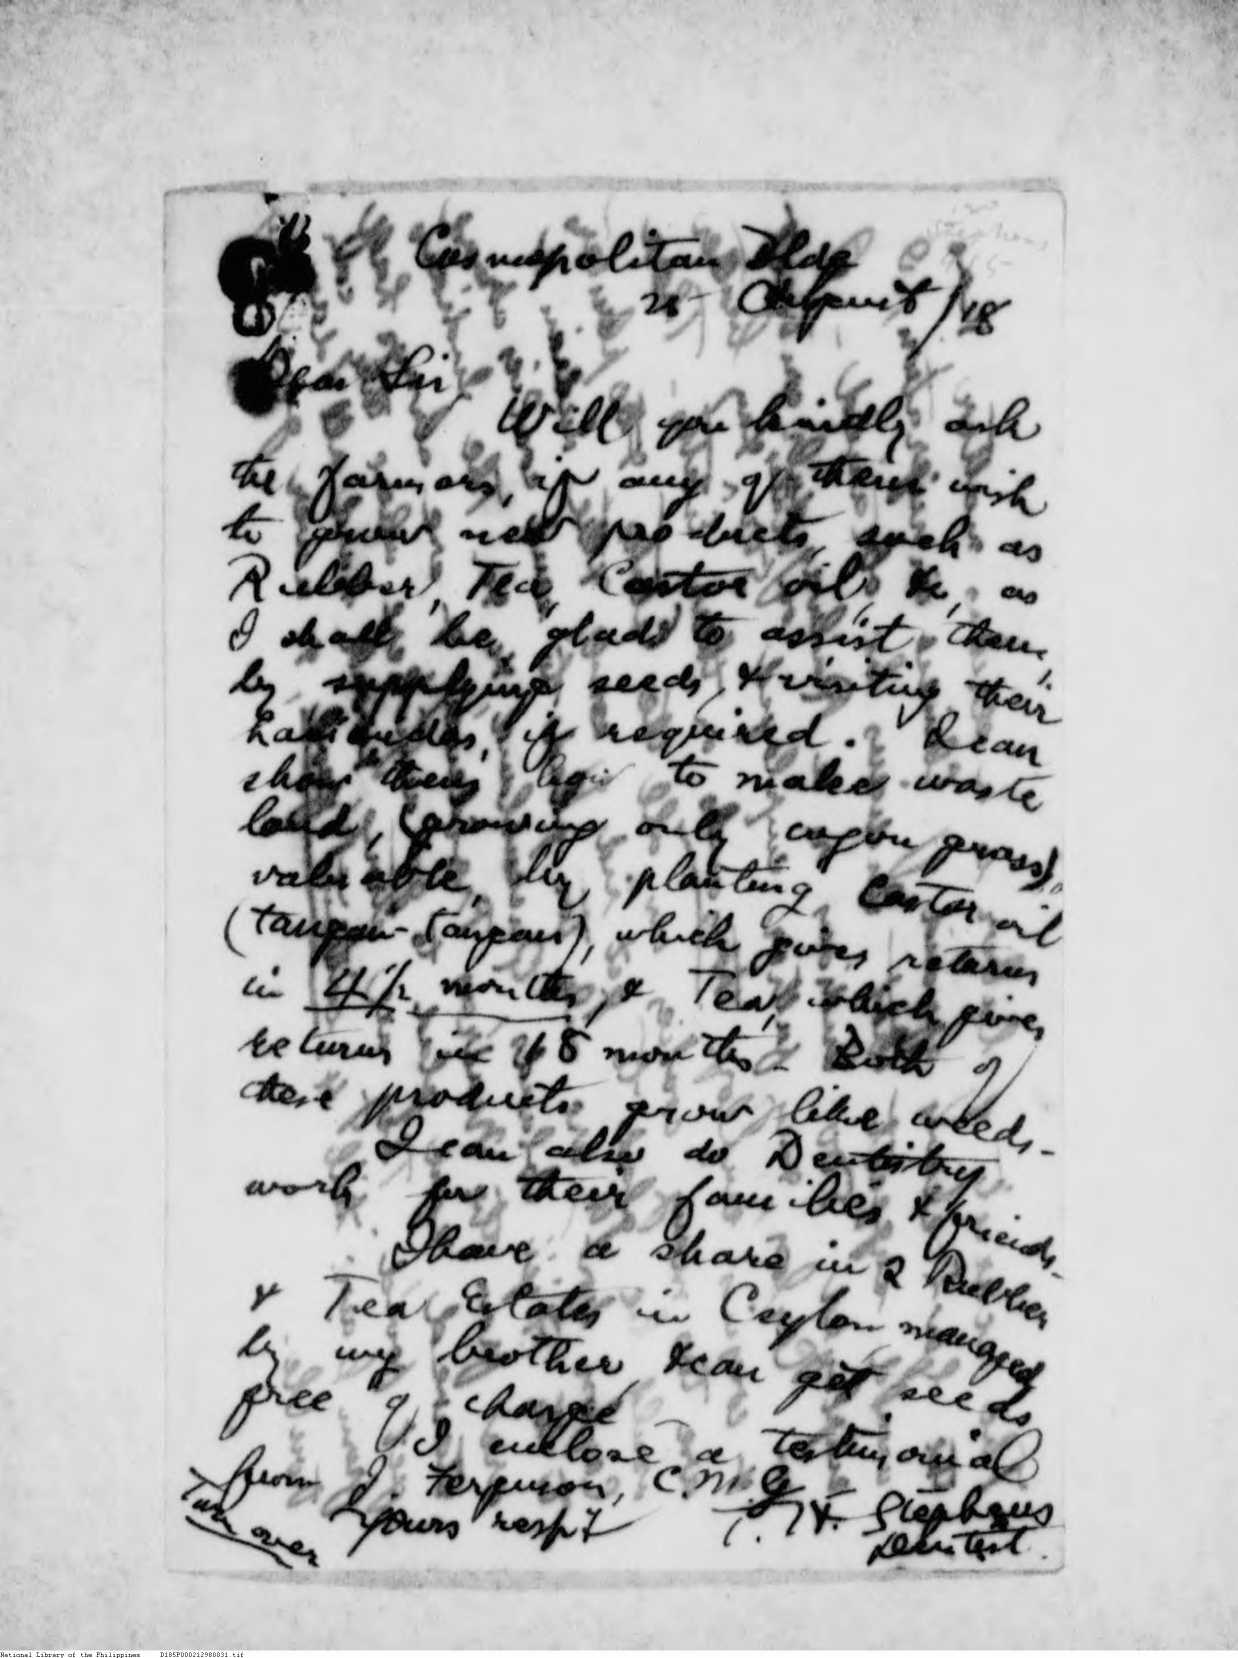 Cosmopolitan Bldg
25 August /18
Dear Sir
Will you kindly ask
the farmers, if any of them wish
to grow new products, such as
Rubber, Tea, Castor oil, &c, as
I shall be glad to assist them,
by supplying seeds, & visiting their
haciendas, if required. I can
show them how to make waste
land, (growing only cogon grass),
valuable, by planting Castor oil
(tangan-tangan), which gives returns
in 4½ months, & Tea, which gives
returns in 18 months - Both of
these products grow like weeds -
I can also do Dentistry
work for their families & friends -
I have a share in 2 Rubber
& Tea Estates in Ceylon managed
by my brother, & can get seeds
free of charge
I enclose a testimonial
from J. Ferguson, C.M.G
Yours respt
H. Stephens
Dentist.
Turn over
National Library of the Philippines D185P000212980831.tif